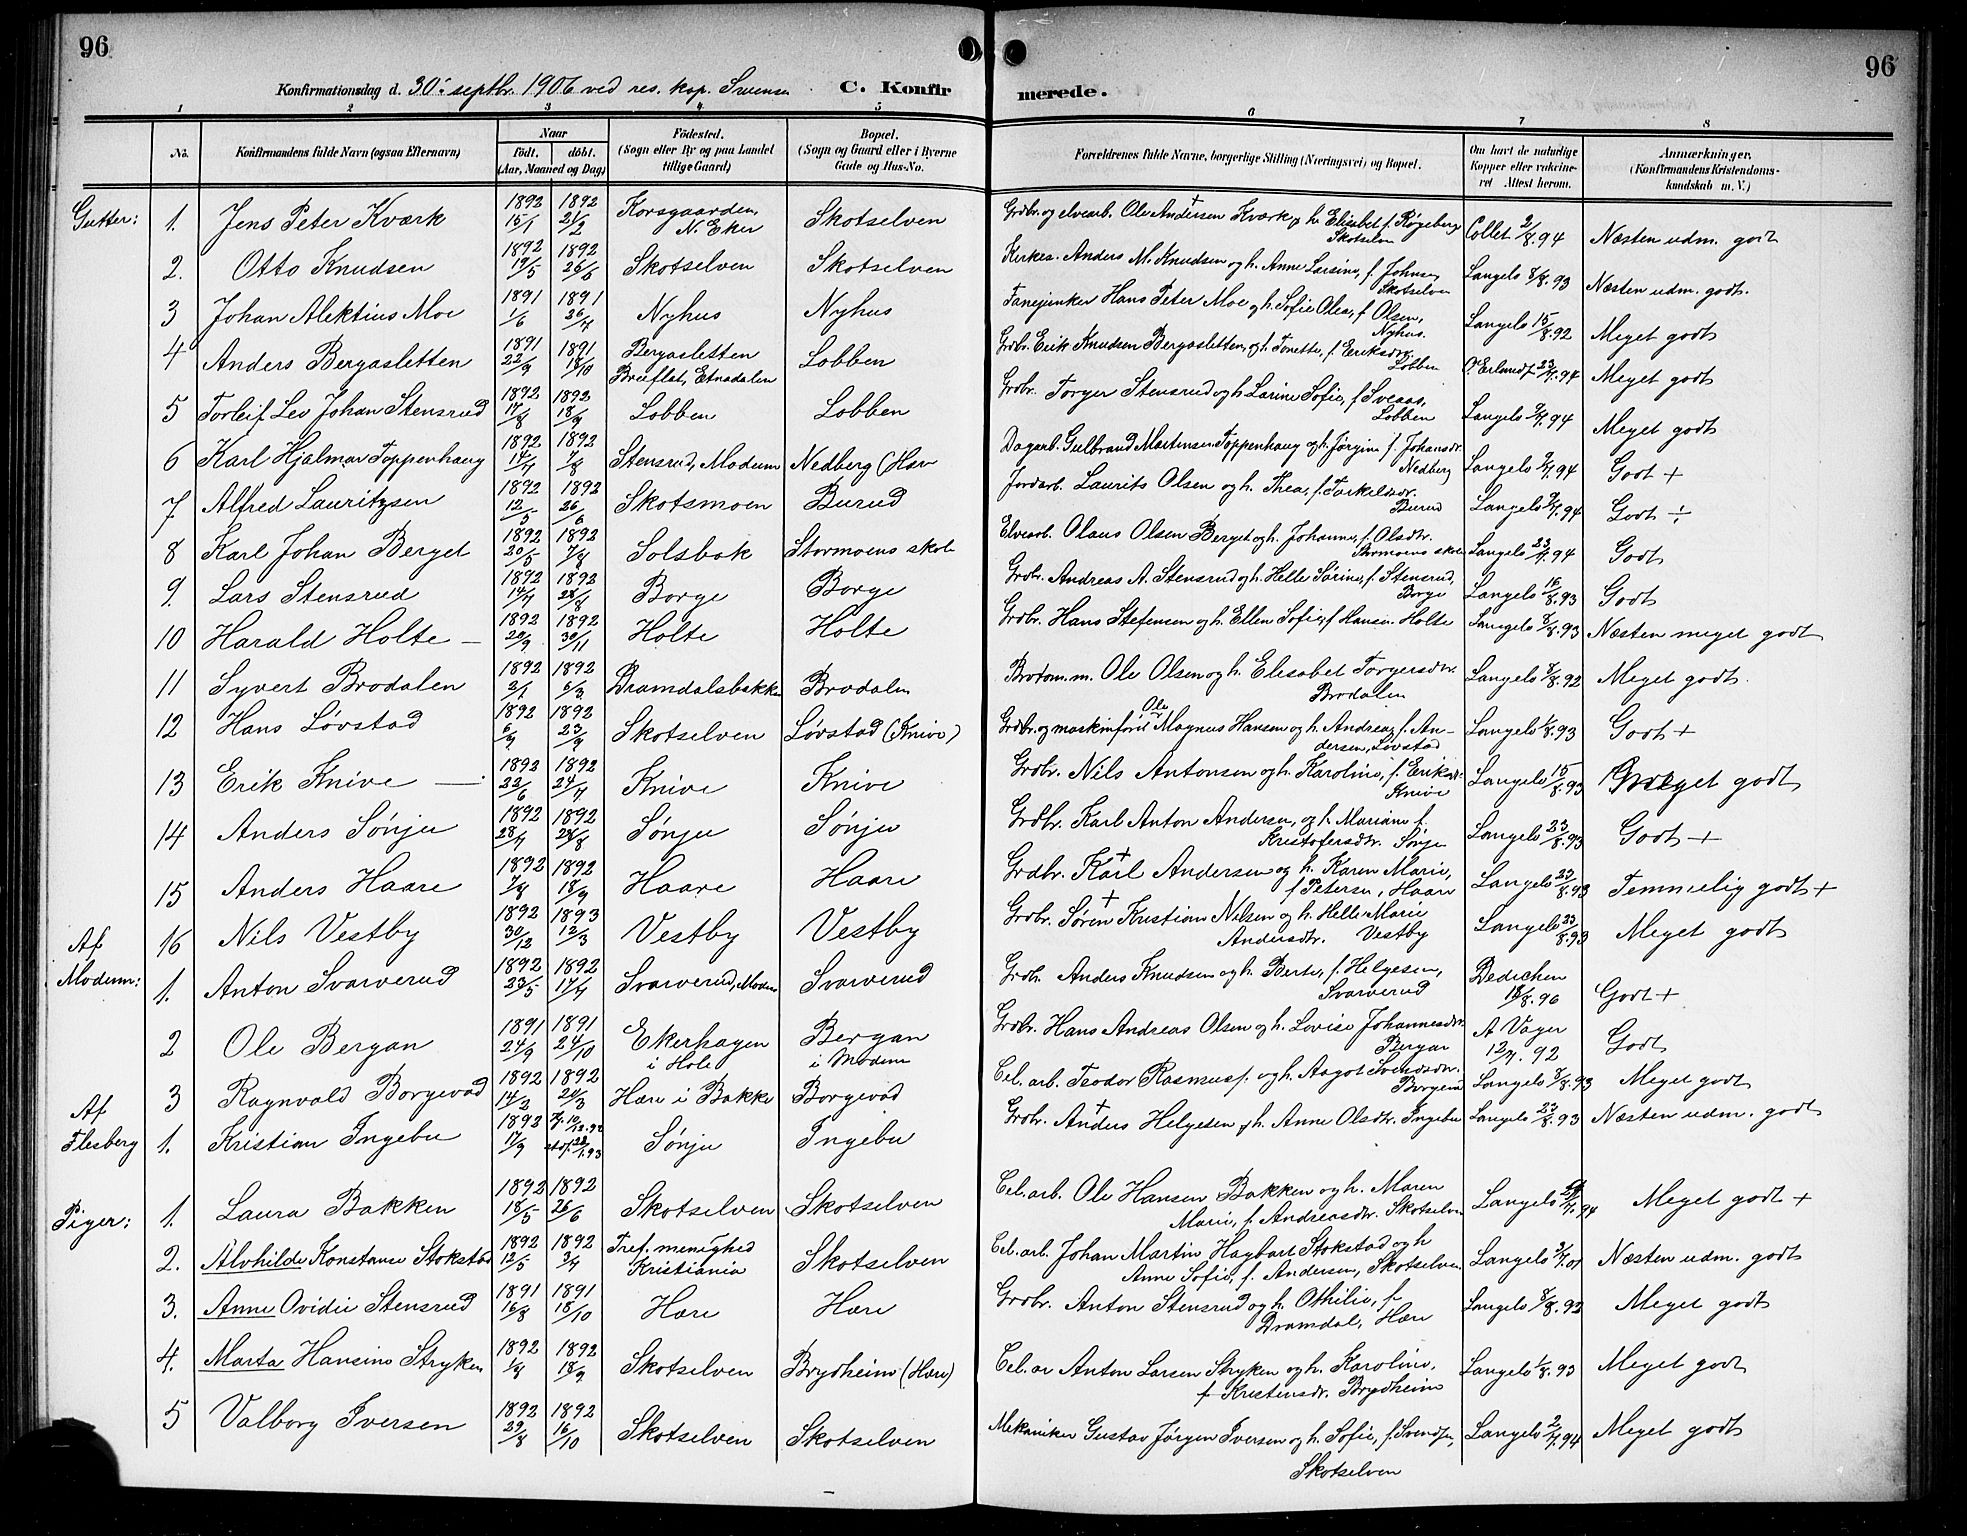 96
96
Konfirmationsdag d. 30: septbr. 1906 ved res. kap. Svensen
C. Konfirmerede.
1 2 3 4 5 6 7 8
No.
Konfirmandens fulde Navn (ogsaa Efternavn)
Naar
født. døbt.
(Aar, Maaned og Dag)
Fødested.
(Sogn eller By og paa Landet
tillige Gaard)
Bopæl.
(Sogn og Gaard eller i Byerne
Gade og Hus-No.
Forældrenes fulde Navne, borgerlige Stilling (Næringsvei) og Bopæl.
Om havt de naturlige
Kopper eller vakcine-
ret Attest herom.
Anmærkninger.
(Konfirmandens Kristendoms-
kundskab m. V.)
Gutter:
1. Jens Peter Kværk 1892 15/1 1892 21/2 Korsgaarden, N. Eker Skotselven Grdbr. og elvearb. Ole Andersen Kværk og h. Elisabet f. Røgeberg Skotselven Collet 2/8.94 Næsten udm. godt
2. Otto Knudsen 1892 19/5 1892 26/6 Skotselven Skotselven Kirkes. Anders M. Knudsen og h. Anne Larsine, f. Johnsen, Skotselven Langels 8/8.93 Næsten udm. godt.
3 Johan Alektius Moe 1891 1/6 1891 26/7 Nyhus Nyhus Fanejunker Hans Peter Moe og h. Sofie Olea, f. Olsen, Nyhus. Langels 15/8.92 Meget godt
4 Anders Bergasletten 1891 22/9 1891 18/10 Bergasletten Breiflat, Etnedalen Lobben Grdbr. Erik Knudsen Bergasletten, og h. Tonette, f. Eriksdr. Lobben Meget godt
5 Torleif Lev Johan Stensrud 1892 17/8 1892 18/9 Lobben Lobben Grdbr. Torger Stensrud og h. Larine Sofie, f. Sveaas, Lobben Langels 94 Meget godt
6 Karl Hjalmar Toppenhaug 1892 14/7 1892 7/8 Stensrud, Modum Nedberg (Hær Dagarb. Gulbrand Martinsen Toppenhaug og h. Jørgine f. Johansdr. Nedberg Langels 94 Godt +
7 Alfred Lauritzsen 1892 12/5 1892 26/6 Skotsmoen Burud Jordarb. Laurits Olsen og h. Thea, f. Torkelsdr. Burud Langels 94 Godt ÷
8 Karl Johan Berget 1892 20/5 1892 7/8 Solsbak Stormoens skole Elvearb. Olaus Olsen Berget og h. Johanne, f. Olsdtr. Stormoens skole Langels 94 Godt
9. Lars Stensrud 1892 14/7 1892 28/8 Borge Borge Grdbr. Andreas A. Stensrud og h. Helle Sørine, f. Stensrud, Borge Langels 16/8.93 Godt
10 Harald Holte — 1892 20/9 1892 30/11 Holte Holte Grdbr. Hans Stefensen og h. Ellen Sofie, f. Hansen Holte Langels 8/8.93 Næsten meget godt
11 Syvert Brodalen 1892 2/1 1892 6/3 Dramdalsbakken Brodalen Brotom. m. Ole Olsen og h. Elisabet Torgersdtr. Brodalen Langels 8/8.92 Meget godt.
12 Hans Løvstad 1892 1892 23/9 Skotselven Løvstad (Knive) Grdbr. og maskinfører Ole Magnus Hansen og h. Andrea, f. Andersen, Løvstad Langels 1/8.93 Godt +
13 Erik Knive — 1892 22/6 1892 24/7 Knive Knive Grdbr. Nils Antonsen og h. Karoline, f. Eriksdr. Knive Langels 15/8.93 Meget godt
14 Anders Sønju 1892 28/7 1892 28/8 Sønju Sønju Grdbr. Karl Anton Andersen, og h. Mariane f. Kristofersdtr. Sønju Langels 23/8.93 Godt +
15 Anders Haare 1892 7/8 1892 18/9 Haare Haare Grdbr. Karl Andersen og h. Karen Marie, f Petersen, Haare Langels 23/8.93 Temmelig godt +
16 Nils Vestby 1892 30/12 1893 12/3 Vestby Vestby Grdbr. Søren Kristian Nilsen og h. Helle Marie Andersdtr. Vestby Langels 23/8.93 Meget godt
Af Modum:
1. Anton Svarverud 1892 23/5 1892 17/7 Svarverud, Modum Svarverud Grdbr. Anders Knudsen og h. Berte, f. Helgesen, Svarverud Dedichen 18/8.96 Godt +
2 Ole Bergan 1891 24/9 1891 24/10 Ekerhagen i Hole Bergan i Modum Grdbr. Hans Andreas Olsen og h. Lovise Johannesdr. Bergan A Vager 12/7.92 Godt
3 Ragnvald Borgevad 1892 14/2 1892 20/3 Hære i Bakke Borgevad Cel. arb. Teodor Rasmuss. og h. Aagot Svendsdr. Borgevad Langels 8/8.93 Meget godt
Af Flesberg
1. Kristian Ingebu 1892 17/9 Sønju Ingebu Grdbr. Anders Helgesen og h. Anne Olsdtr. Ingebu Langels 23/8.93 Næsten udm. godt
Piger:
1. Laura Bakken 1892 18/5 1892 26/6 Skotselven Skotselven Cel. arb. Ole Hansen Bakken og h. Maren Marie, f. Andreasdtr. Skotselven Langels 94 Meget godt +
2. Alvhilde Konstanse Stokstad 1892 12/5 1892 3/7 Tref. menighed Kristiania Skotselven Cel. arb. Johan Martin Hagbart Stokstad og h Anne Sofie, f. Andersen, Skotselven Langels Næsten udm. godt
3. Anne Ovidie Stensrud 1891 16/8 1891 18/10 Hære Hære Grdbr. Anton Stensrud og h. Othilie, f Dramdal, Hære Langels 8/8.93 Meget godt
4. Marta Hansine Stryken 1892 1/8 1892 18/9 Skotselven Brydheim (Hære) Cel. ar Anton Larsen Stryken og h. Karoline, f Kristensdr. Brydheim Langels 1/8.93 Meget godt
5 Valborg Iversen 1892 29/8 1892 16/10 Skotselven Skotselven Mekaniker Gustav Jørgen Iversen og h. Sofie, f. Svendsen, Skotselven Langels 94 Meget godt